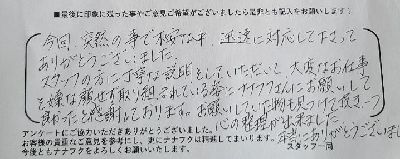 ■最後に印象に残った事やご意見ご希望がございましたら是非とも記入をお願いします！
今回、突然の事で不安な中、迅速に対応して下さって
ありがとうございました。
スタッフの方に丁寧な説明をしていただいて、大変なお仕事
を嫌な顔せず取り組されている姿にナナフクさんにお願いして
良かったと感謝しております。お願いしていた物も見つけて頂きつ
心の整理が出来ました。
本当にありがとうございました
アンケートにご協力いただきありがとうございました。
お客様の貴重なご意見を参考にし、更にナナフクは精進してまいります。
今後ともナナフクをよろしくお願い致します。
スタッフ一同